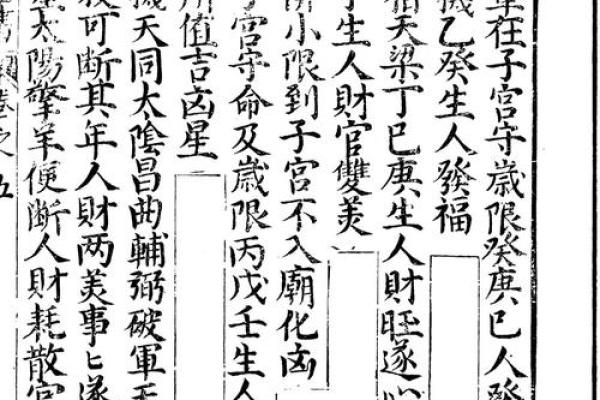 在子宮守歲限癸庚巳人發
乙癸生人發福
相天梁丁巳庚生人財旺遂心
生人財官雙美
小限到子宮不入廟化凶
子宮守命及歲限丙戊壬生人
值吉凶星
天同太陰昌曲輔弼破軍
可斷其年人財兩美事匕遂
太陽擎羊便斷人財耗散官
卷之五